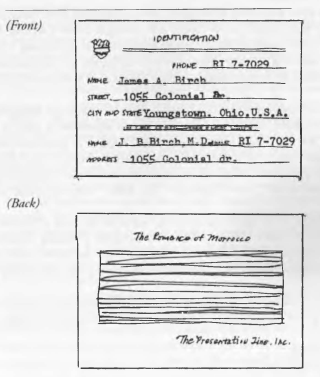 (Front)
IDENTIFICATION
PHONE RI 7-7029
NAME James A. Birch
STREET 1055 Colonial Dr.
CITY AND STATE Youngstown, Ohio, U.S.A.
NAME J. B. Birch, M.D. RI 7-7029
ADDRESS 1055 Colonial dr.
(Back)
The Romance of Morrocco
The Presentation Line, Inc.